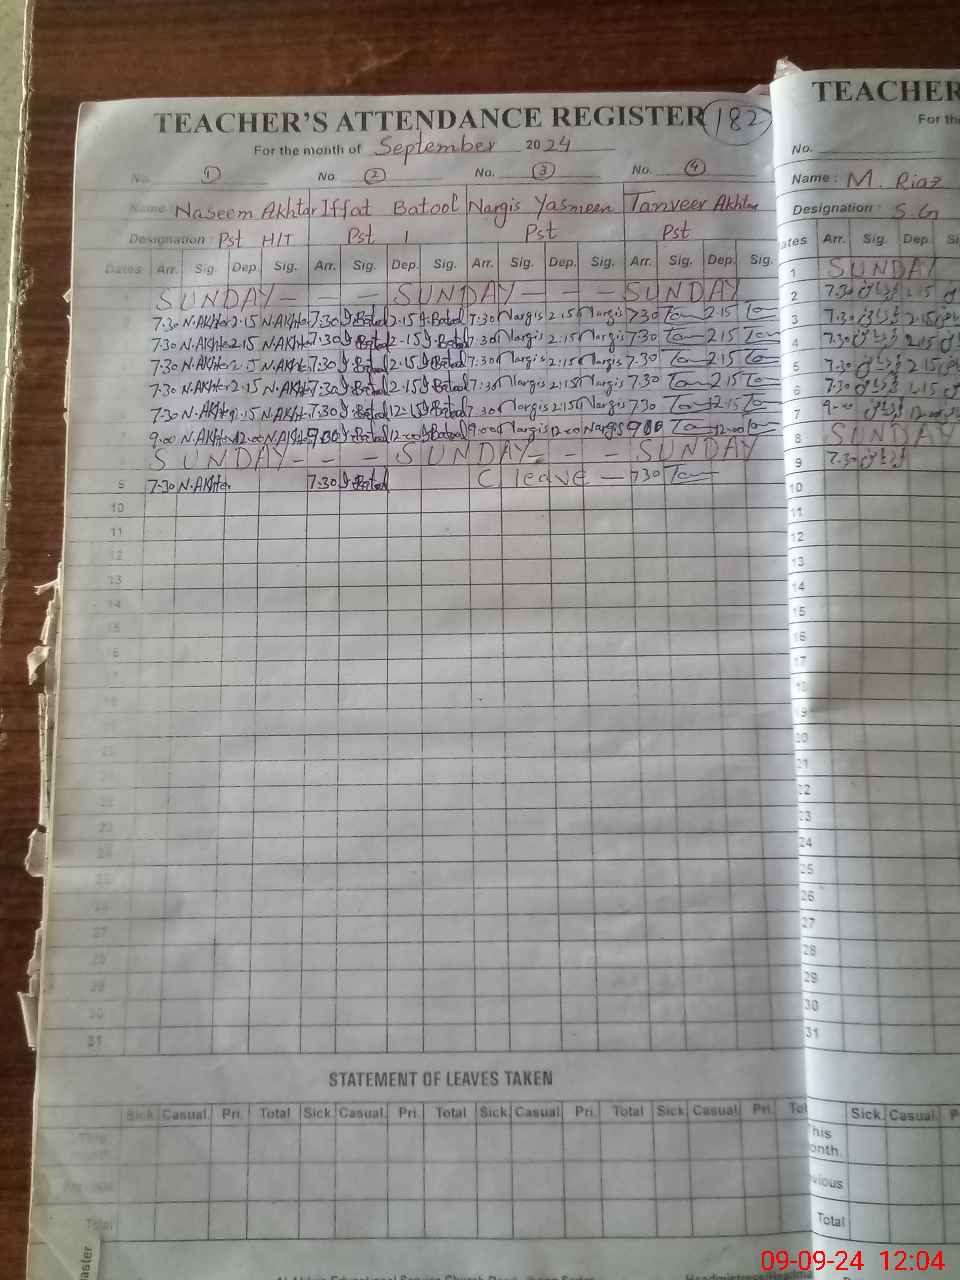 TEACHER'S ATTENDANCE REGISTER 182
For the month of September 2024
No. 1 No. 2 No. 3 No. 4
Name: Naseem Akhtar Iffat Batool Nargis Yasmeen Tanveer Akhtar
Designation: Pst H/T Pst 1 Pst Pst
Dates Arr. Sig. Dep. Sig. Arr. Sig. Dep. Sig. Arr. Sig. Dep. Sig. Arr. Sig. Dep. Sig.
SUNDAY - - - SUNDAY - - - SUNDAY
7.30 N.AKhtar 2.15 N.AKhtar 7.30 I.Batool 2.15 I.Batool 7.30 Nargis 2.15 Nargis 7.30 2.15
7.30 N.AKhtar 2.15 N.AKhtar 7.30 I.Batool 2.15 I.Batool 7.30 Nargis 2.15 Nargis 7.30 2.15
7.30 N.AKhtar N.AKhtar 7.30 I.Batool 2.15 I.Batool 7.30 Nargis 2.15 Nargis 7.30 2.15
7.30 N.AKhtar 2.15 N.AKhtar 7.30 I.Batool 2.15 I.Batool 7:30 Nargis 2.15 Nargis 7.30 2.15
7.30 N.AKhtar N.AKhtar 7.30 I.Batool I.Batool 7.30 Nargis 2.15 Nargis 7.30 2.15
9.00 N.AKhtar 12.00 N.AKhtar 9.00 I.Batool 12.00 I.Batool 9.00 Nargis 12.00 Nargis 9.00 12.00
SUNDAY - - - SUNDAY - - - SUNDAY
9 7.30 N.AKhtar 7.30 I.Batool C leave - 7.30
10
11
12
13
14
15
23
27
30
31
STATEMENT OF LEAVES TAKEN
Sick. Casual. Pri. Total Sick. Casual. Pri. Total Sick. Casual. Pri. Total Sick. Casual. Pri. Tot
This
Total
aster
TEACHER
For th
No.
Name: M. Riaz
Designation: S.G
ates Arr. Sig. Dep. Si
1 SUNDAY
2 7.30 2.15
3 7.30 2.15
4 7.30 2.15
5 7.30 2.15
6 7.30 2.15
7 9.00 12.00
8 SUNDAY
9 7.30
10
11
12
13
14
15
16
17
18
19
20
21
22
23
24
25
26
27
28
29
30
31
Sick. Casual. P
This
onth.
vious
Total
09-09-24 12:04